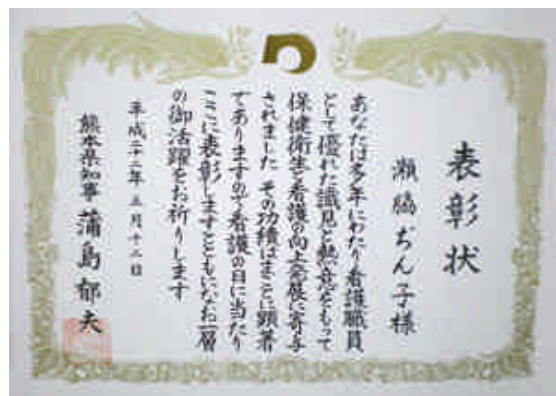 表彰状
瀬脇ぢん子様
あなたは多年にわたり看護職員
として優れた識見と熱意をもって
保健衛生と看護の向上発展に寄与
されました その功績はまことに顕著
でありますので看護の日に当たり
ここに表彰しますとともになお一層
の御活躍をお祈りします
平成二十二年五月十二日
熊本県知事 蒲島郁夫